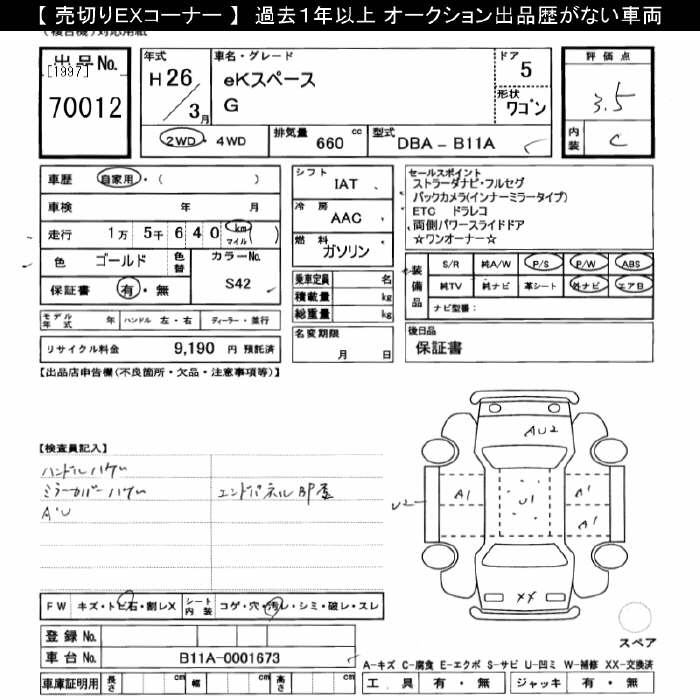 【 売切りEXコーナー 】 過去１年以上 オークション出品歴がない車両
出品No.
[1997]
70012
年式
H 26/3月
車名・グレード
eKスペース
G
ドア
5
形状
ワゴン
2WD・4WD
排気量 660 cc
型式 DBA - B11A
評価点
3.5
内装 C
車歴 自家用・( )
車検 年 月
走行 1万 5千 6 4 0 km マイル ( )
色 ゴールド
色替
カラーNo.
S42
保証書 有・無
モデル年式 年
ハンドル 左・右
ディーラー・並行
リサイクル料金 9,190 円 預託済
シフト
IAT
冷房
AAC
燃料
ガソリン
乗車定員 名
積載量 kg
総重量 kg
名変期限
月 日
セールスポイント
ストラーダナビ・フルセグ
バックカメラ(インナーミラータイプ)
ETC ドラレコ
両側パワースライドドア
☆ワンオーナー☆
装備品
S/R 純A/W P/S P/W ABS
純TV 純ナビ 革シート 外ナビ エアB
ナビ型番:
後日品
保証書
【出品店申告欄(不良箇所・欠品・注意事項等)】
【検査員記入】
ハンドルハゲ
ミラーカバーハゲ
エンドパネルBP歪
A'U
AU2
A1
U1
A1
A1
U2
XX
FW キズ・トビ石・割レX
シート内装 コゲ・穴・汚レ・シミ・破レ・スレ
登録No.
車台No. B11A-0001673
車庫証明用 長さ cm 幅 cm 高さ cm
スペア
A-キズ C-腐食 E-エクボ S-サビ U-凹ミ W-補修 XX-交換済
工具 有・無 ジャッキ 有・無